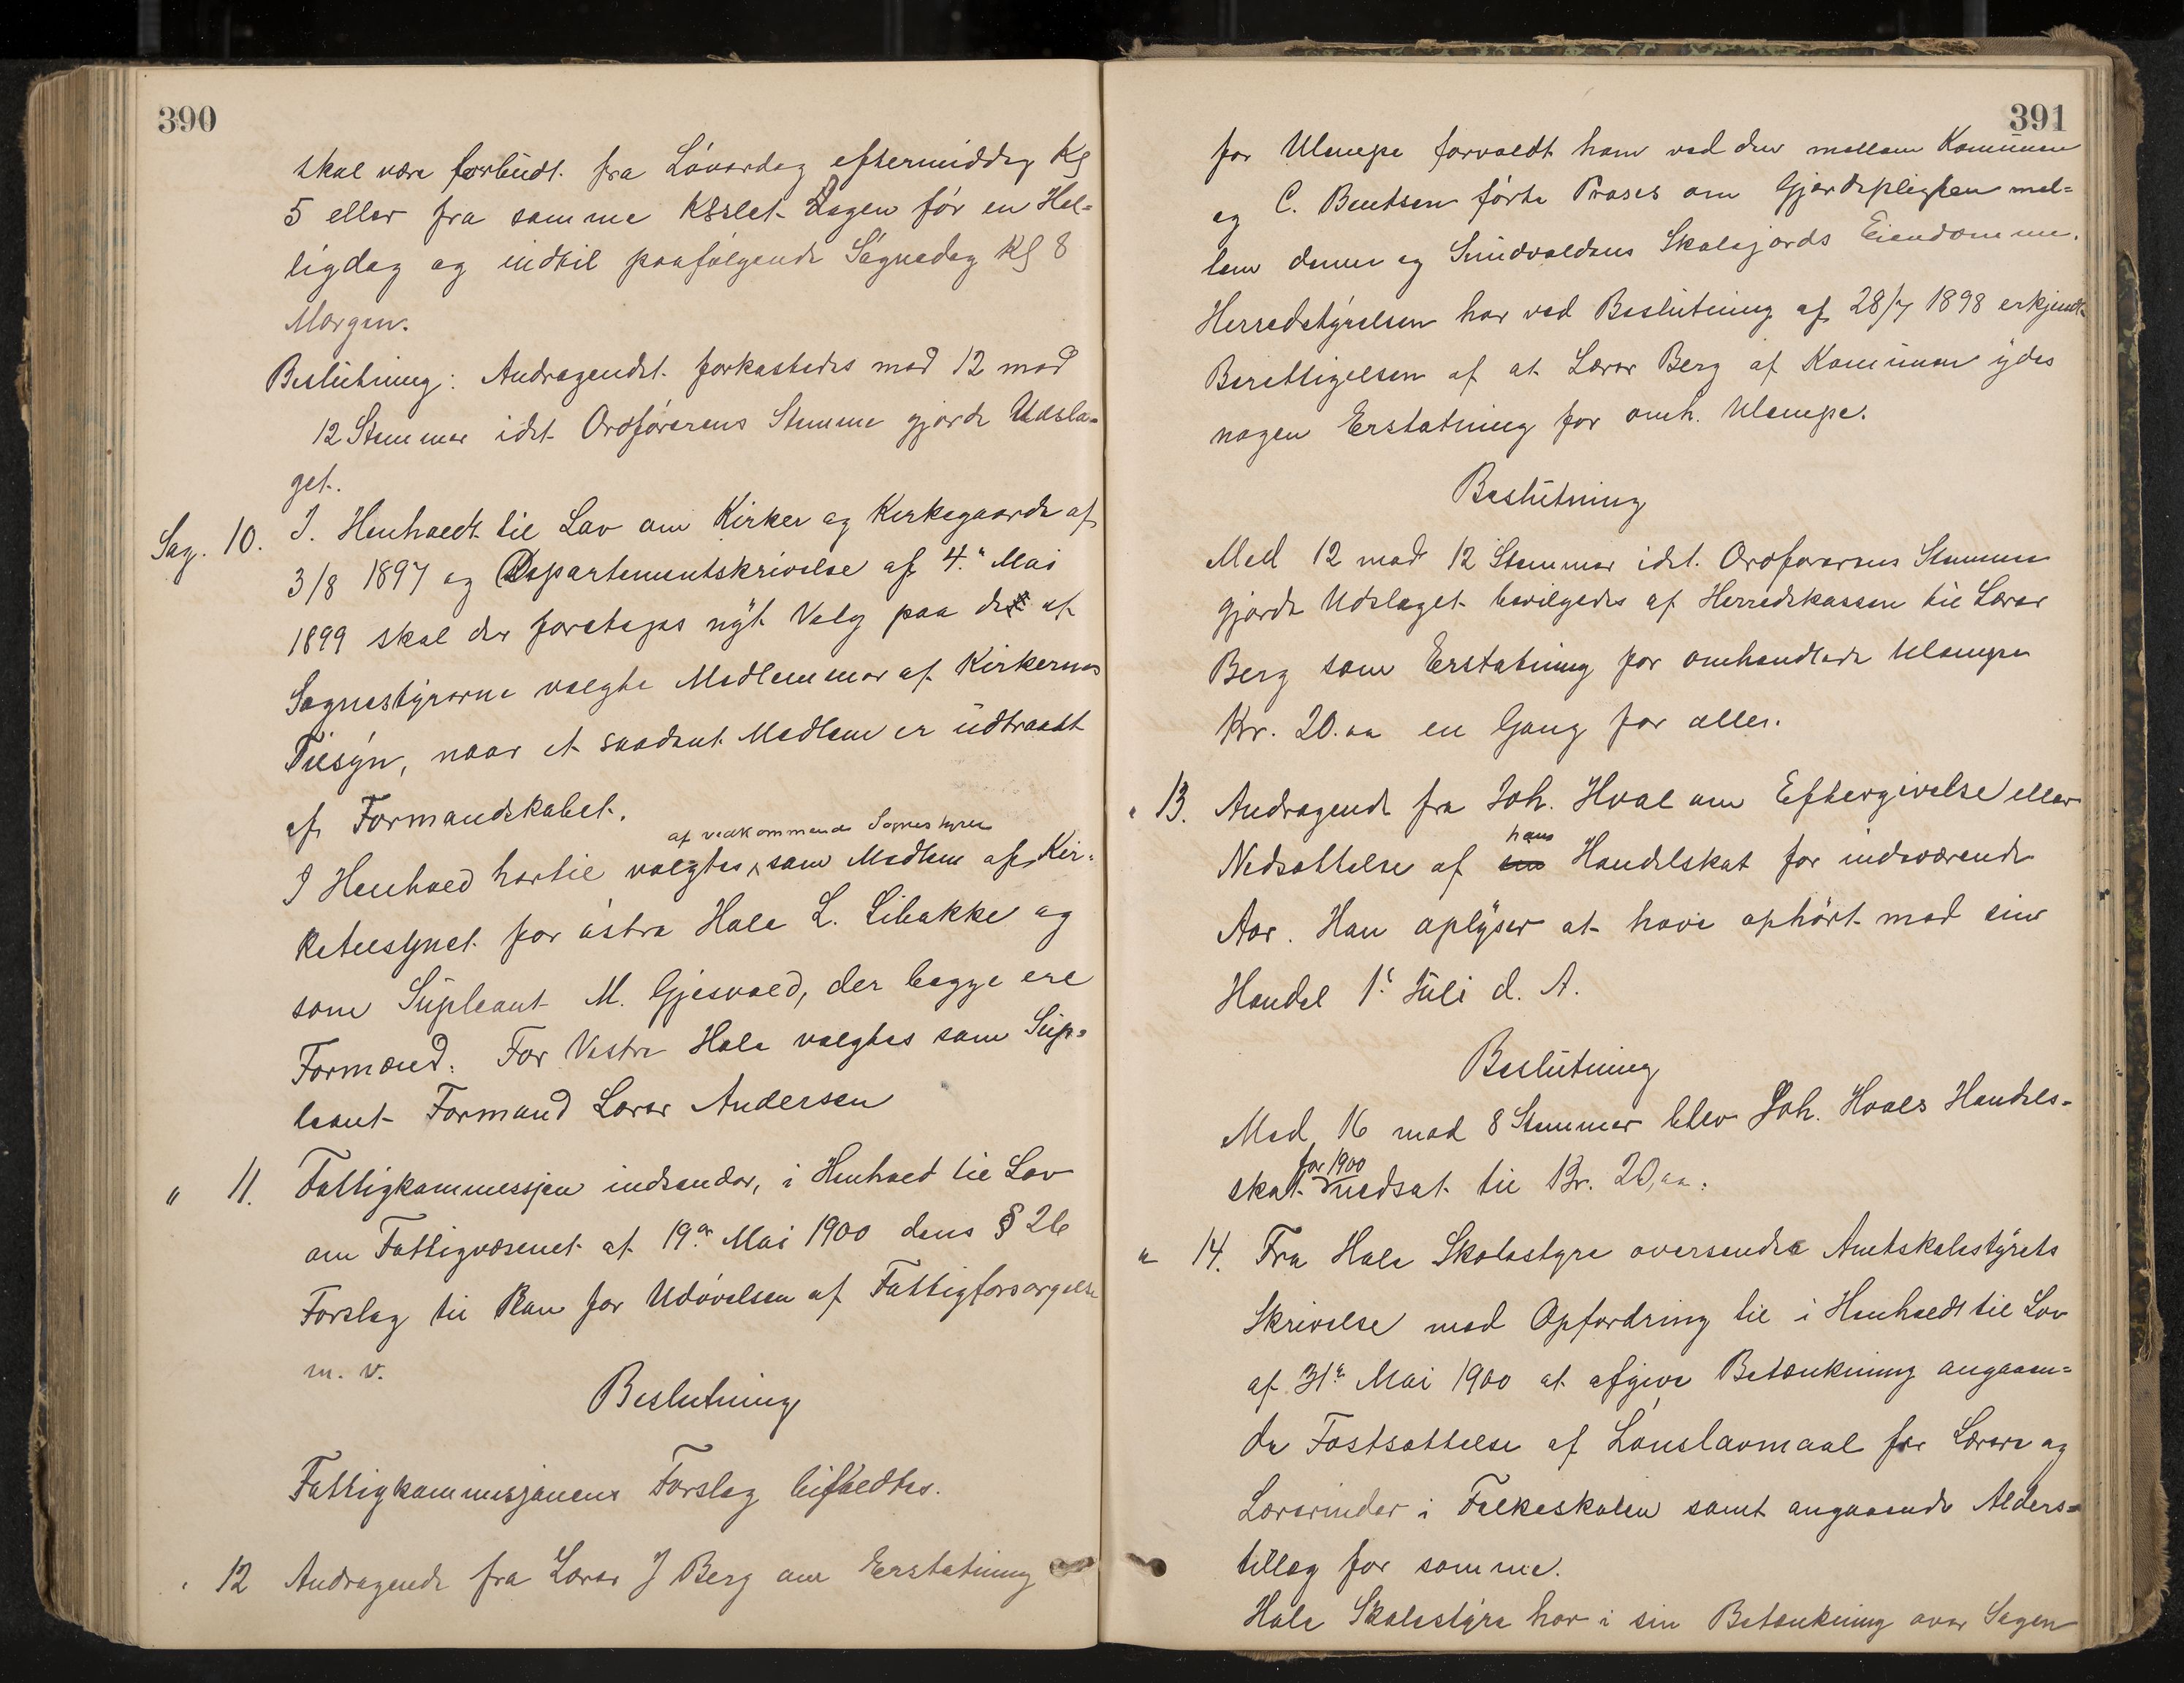 390
skal være forbudt fra Lóverdag eftermiddag Kl
5 eller fra samme Klslet Dagen fór en Hel=
ligdag og indtil paafólgende Sógnedag Kl 8
Morgen.
Beslutning: Andragendet forkastedes med 12 mod
12 Stemmer idet Ordfórerens Stemme gjorde Udsla=
get.
Sag. 10. I. Henhold til Lov om Kirker og Kirkegaarde af
3/8 1897 og Departementskrivelse af 4.de Mai
1899 skal der foretages nyt Valg paa de af
Sognestyrerne valgte Medlemmer af Kirkernes
Tilsyn, naar et saadant Medlem er udtraadt
af Formandskabet.
af vedkommende Sognestyrer
I Henhold hertil valgtes som Medlem af Kir=
ketilsynet for óstre Hole L. Libakke og
som Supleant M. Gjesvold, der begge ere
Formænd. For Vestre Hole valgtes som Sup=
leant Formand Lærer Andersen
" 11. Fattigkommissjen indsender, i Henhold til Lov
om Fattigvæsenet af 19de Mai 1900 dens § 26
Forslag til Plan for Udóvelsen af Fattigforsorgelse
m. v.
Beslutning
Fattigkommisjonens Forslag bifaldtes.
" 12 Andragende fra Lærer J Berg om Erstatning
391
for Ulempe forvoldt ham ved den mellem Komunen
og C. Bentsen fórte Proses om Gjerdepligten mel=
lem denne og Sundvoldens Skolejords Eiendomme.
Herredstyrelsen har ved Beslutning af 28/7 1898 erkjendt
Berettigelsen af at Lærer Berg af Komunen ydes
nogen Erstatning for omh. Ulempe.
Beslutning
Med 12 mod 12 Stemmer idet Ordfórerens Stemme
gjorde Udslaget bevilgedes af Herredskassen til Lærer
Berg som Erstatning for omhandlede Ulempe
Kr. 20.00 en Gang for alle.
" 13. Andragende fra Joh. Hval om Eftergivelse eller
hans
Nedsættelse af sin Handelskat for indeværende
Aar. Han oplyser at have ophórt med sin
Handel 1ste Juli d. A.
Beslutning
Med 16 mod 8 Stemmer blev Joh. Hvals Handels-
for 1900
skat nedsat til Kr. 20,00.
" 14. Fra Hole Skolestyre oversendes Amtskolestyrets
Skrivelse med Opfordring til i Henhold til Lov
af 31te Mai 1900 at afgive Betænkning angaaen=
de Fastsættelse af Lónslavmaal for Lærere og
Lærerinder i Folkeskolen samt angaaende Alders=
tillæg for samme.
Hole Skolestyre har i sin Betænkning over Sagen